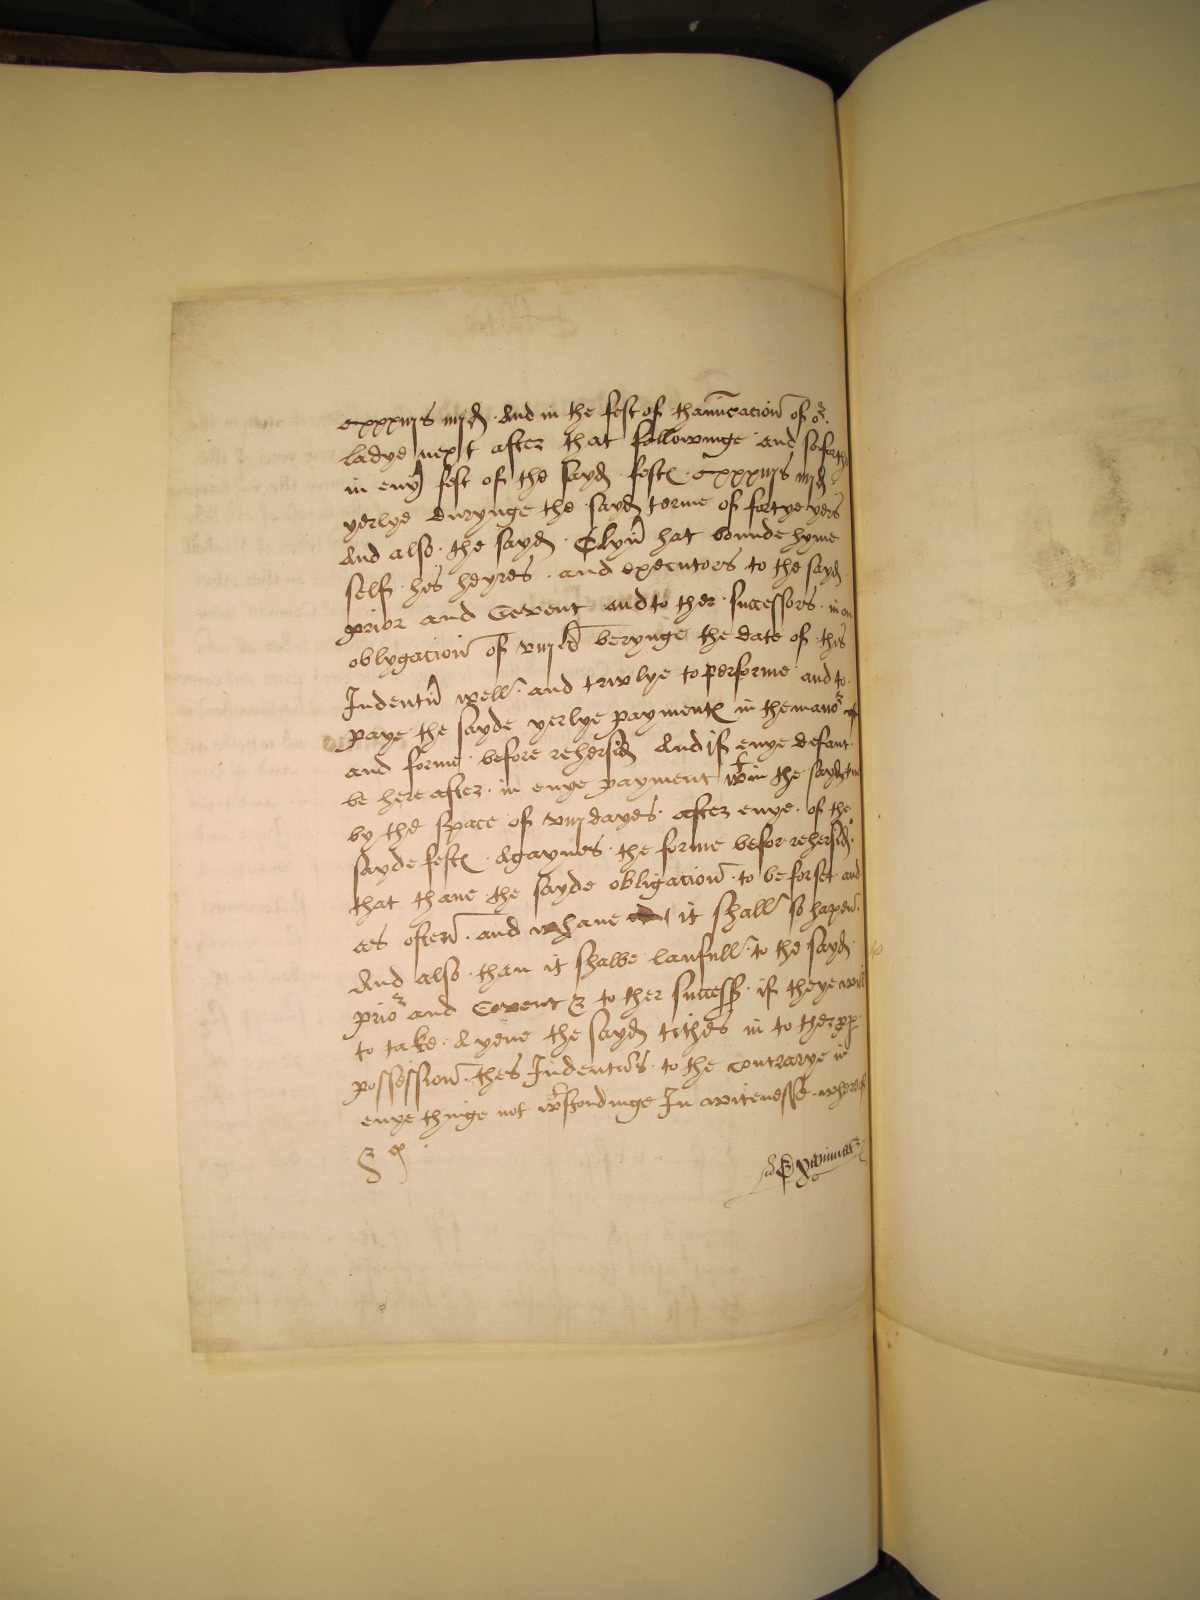 cxxxiijs iiijd. And in the fest of thanūciacioñ of or
ladye next after that followinge and soforthe
in eny fest of the sayd fest cxxxiijs iiijd
yerlye durynge the sayd terme of fortye yers
And also the sayd Elyn hat bounde hyme
self his heyres and executors to the sayd
prior and Covent and to ther successors in an
oblygacioñ of berynge the date of this
Indentur well and trwlye to performe and to
paye the sayde yerlye payment in the manor of
and forme before rehersid And if enye defaut
be here after in enye payment wtin the sayd
by the space of viij dayes after enye of the
sayde fest Agaynes the forme befor rehersid
that thane the sayde obligacioñ to be forfet and
as ofteñ and whane it shall so hapeñ
And also than it shalbe laufull to the sayd
prior and Covent & to ther success if theye
to take Ayene the sayd tithes in to ther
possessioñ thes Indenturs to the contrarye in
enye thinge not wtstondinge In witenesse wherof
&c